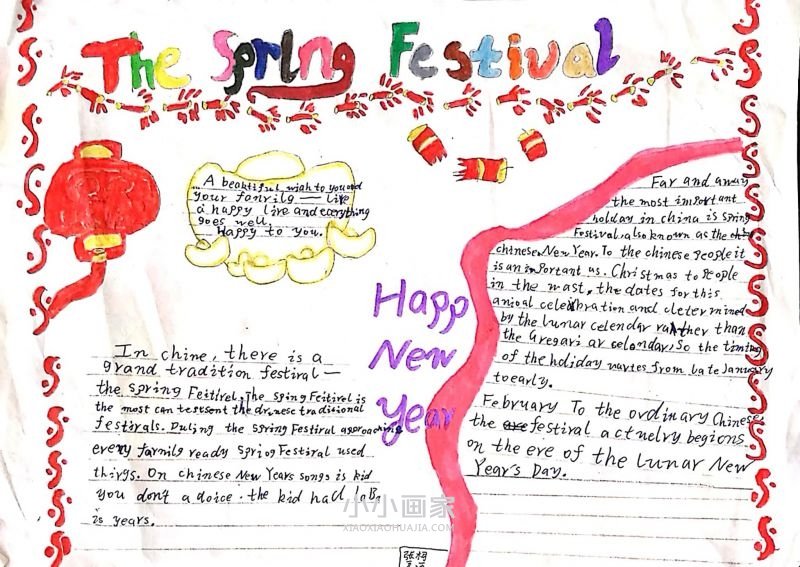 The Spring Festival
A beautiful wish to you and
your fanrily — live
a happy live and everything
goes well.
Happy to you.
Happ
New
year
In chine, there is a
grand tradition festival —
the spring Feitirel, The Sping Feitirel is
the most can
traditional
festirals. Duling the spring Festiral approaching
every farnily ready Spriog Festival used
thirgs. On chinese New Years songs is kid
you don't a doice. the kid had lobs
is years.
Far and away
the most important
holiday in china is spring
Festival, also known as the
chinese New Year. To the chinese people it
is an important us. Christmas to People
in the wast, the dates for this
anioal celebration and cletermined
by the lunar celendar rather than
the Gregari ar celondar, So the timing
of the holiday vartes from late January
to early.
February To the ordinary Chinese
the festival actuelry begions
on the eve of the Lunar New
Year's Day.
小小画家
XIAOXIAOHUAJIA.COM